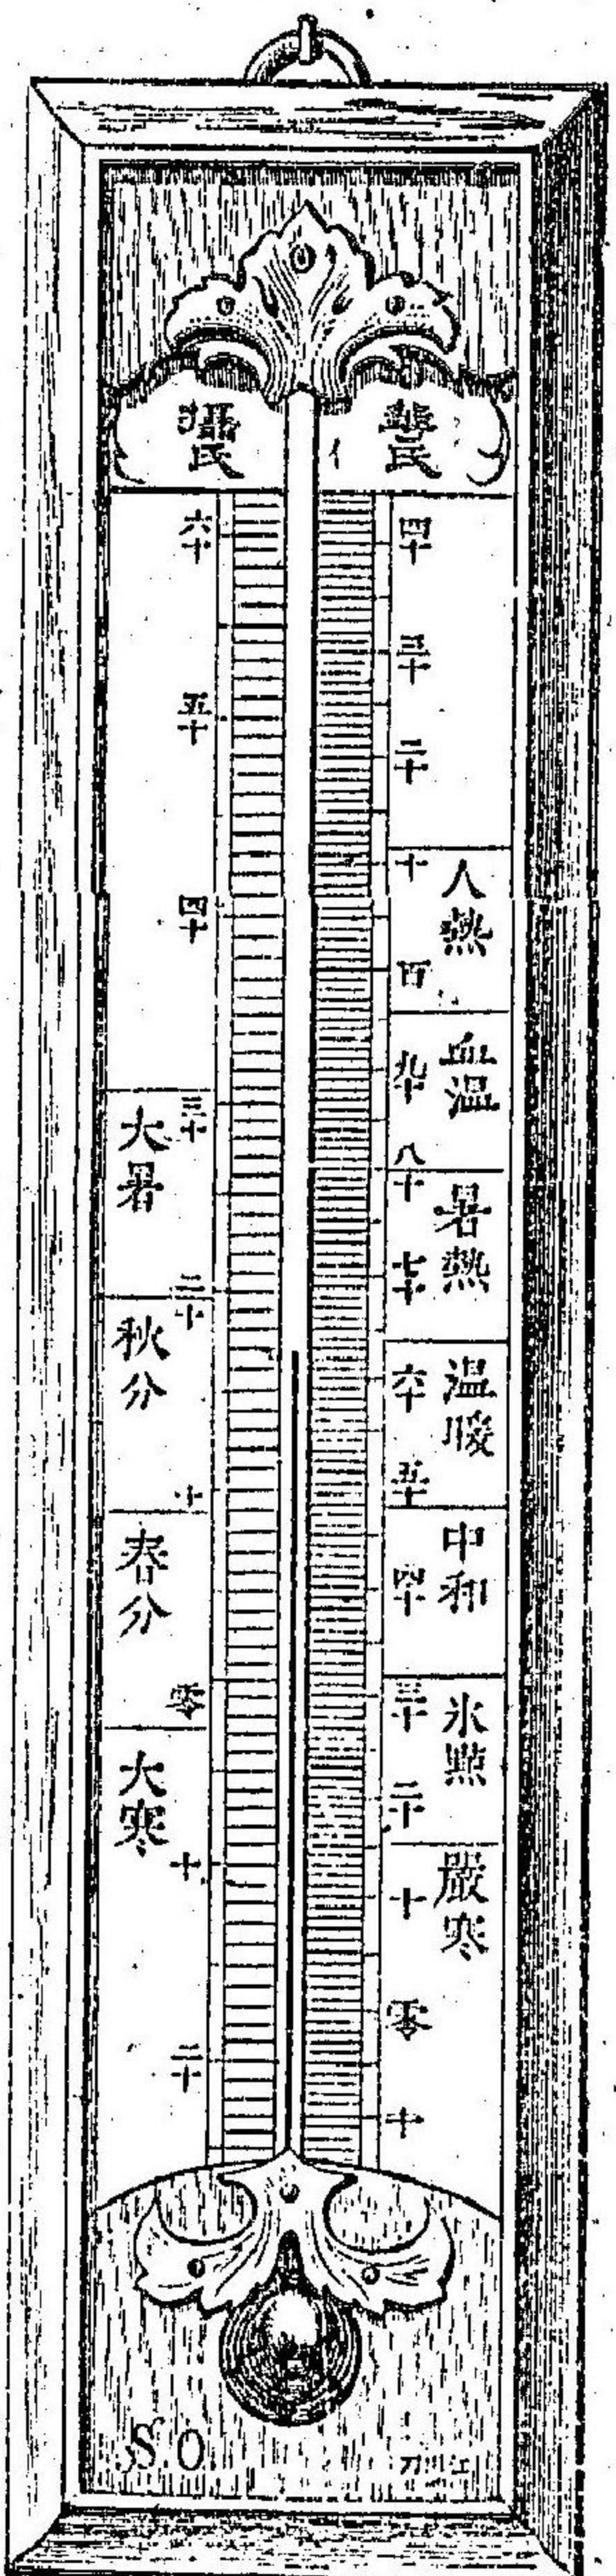 攝氏
華氏
六十
五十
四十
三十
大暑
二十
秋分
十
春分
零
大寒
十
二十
四十
三十
二十
十
人熱
百
血温
九十
八十
暑熱
七十
六十
温暖
五十
中和
四十
三十
氷點
二十
嚴寒
十
零
十
SO
江
刀